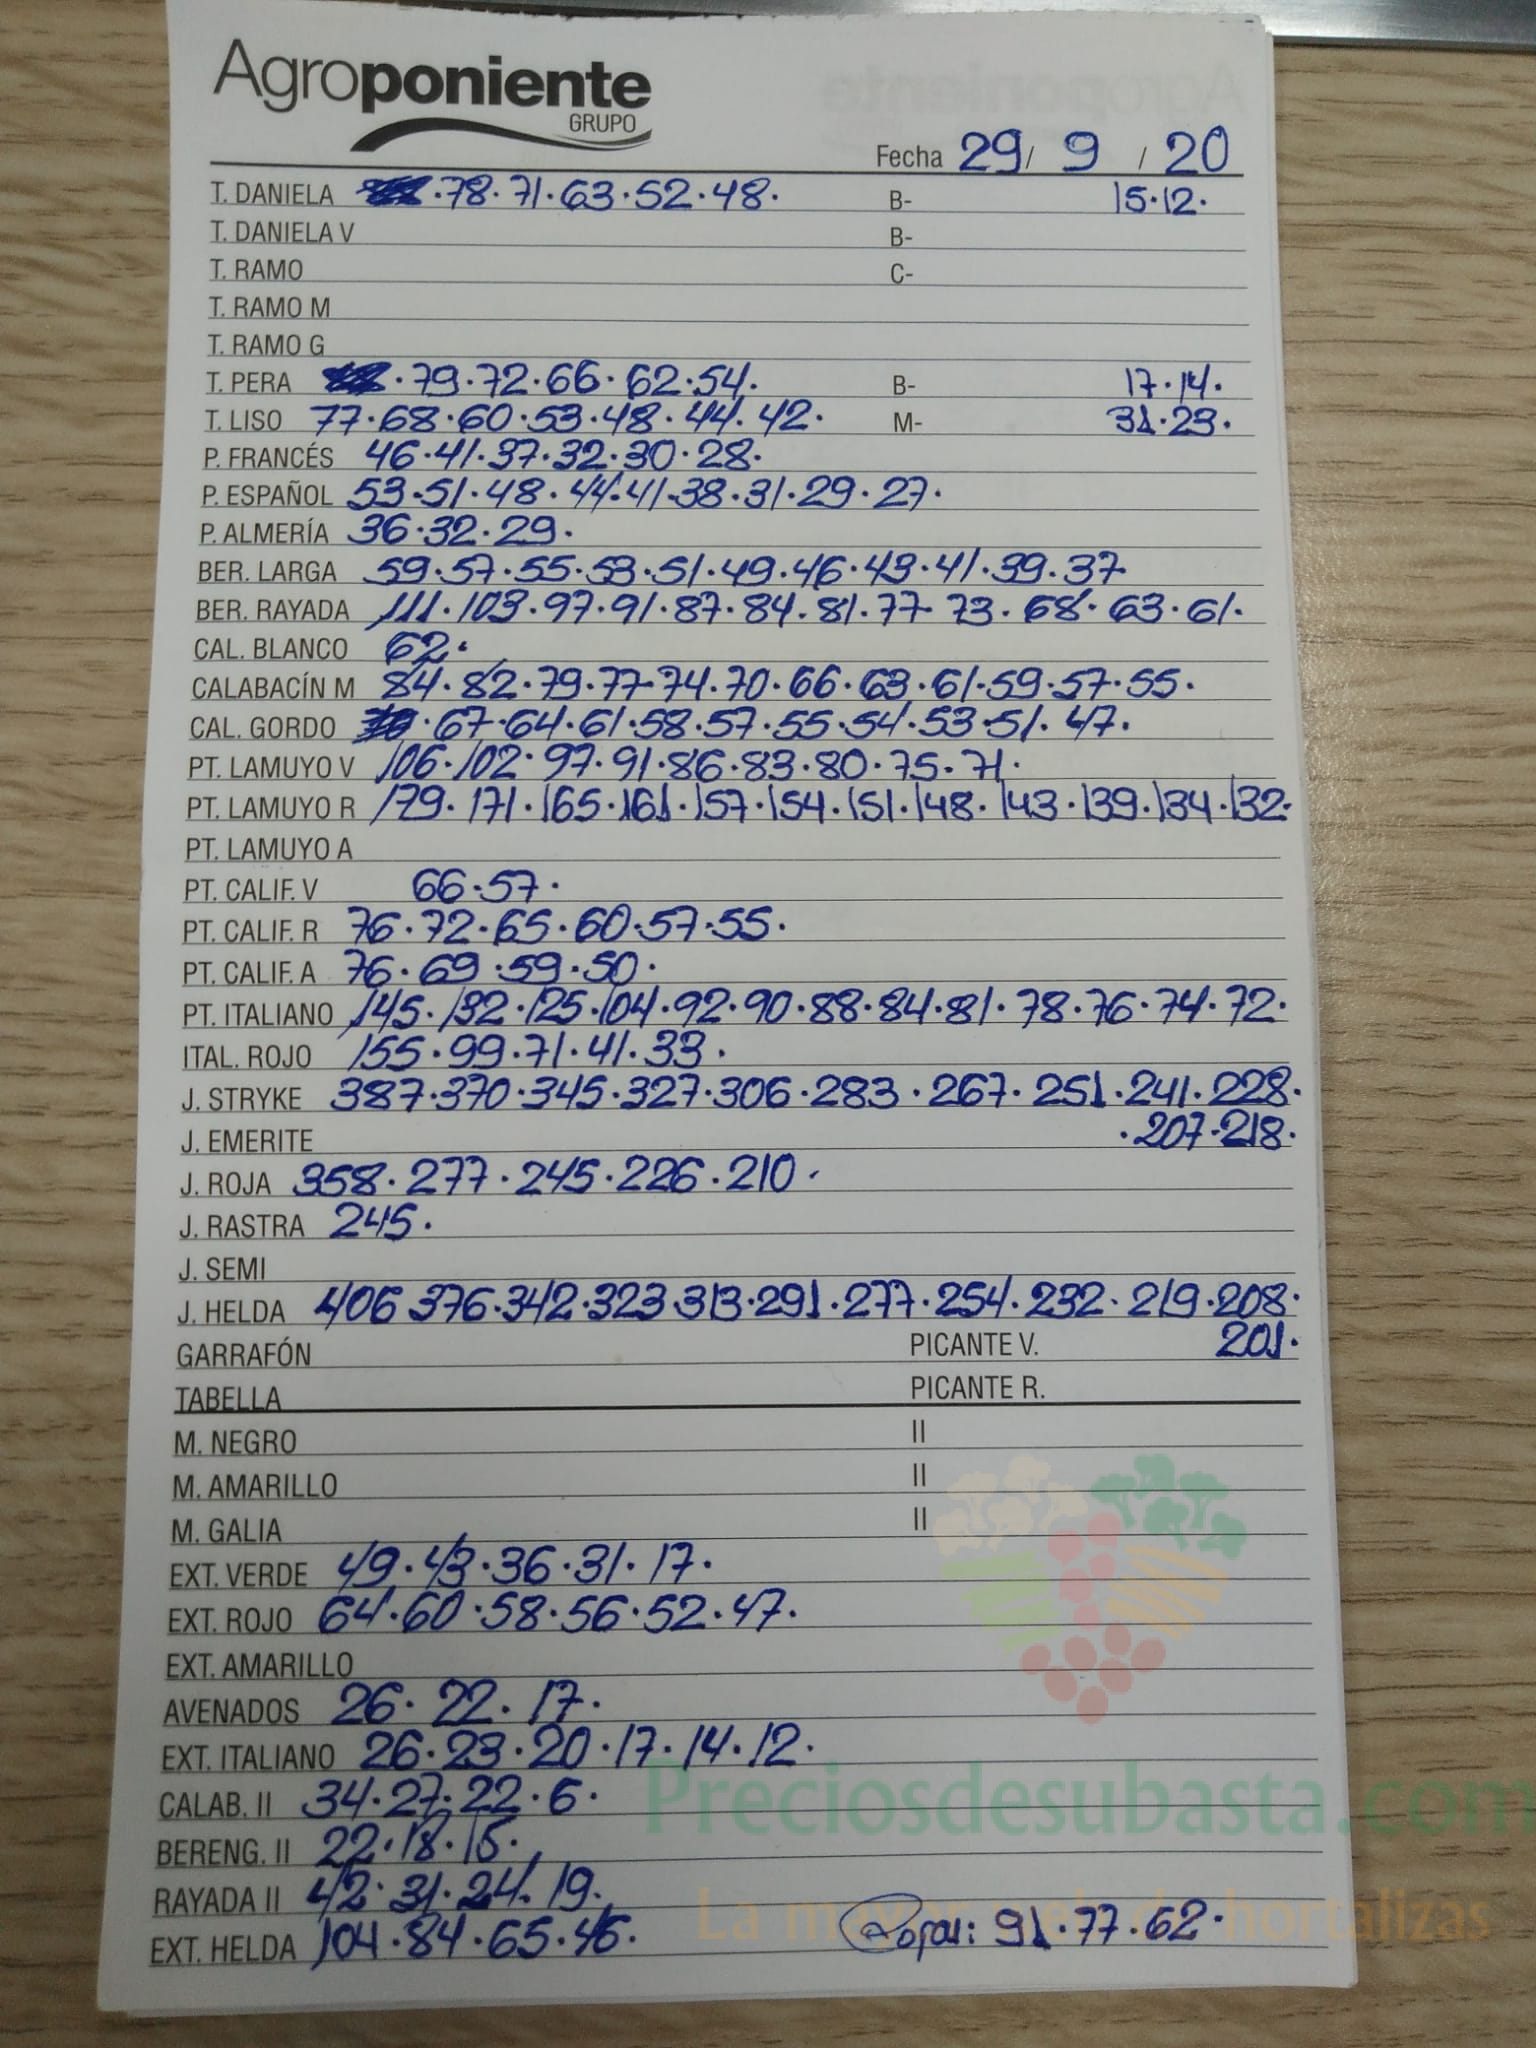 Agroponiente
GRUPO
Fecha 29/ 9 / 20
T. DANIELA ·78·71·63·52·48· B- 15·12·
T. DANIELA V B-
T. RAMO C-
T. RAMO M
T. RAMO G
T. PERA ·79·72·66·62·54· B- 17·14·
T. LISO 77·68·60·53·48·44·42· M- 31·23·
P. FRANCÉS 46·41·37·32·30·28·
P. ESPAÑOL 53·51·48·44·41·38·31·29·27·
P. ALMERÍA 36·32·29·
BER. LARGA 59·57·55·53·51·49·46·43·41·39·37
BER. RAYADA 111·103·97·91·87·84·81·77·73·68·63·61·
CAL. BLANCO 62·
CALABACÍN M 84·82·79·77·74·70·66·63·61·59·57·55·
CAL. GORDO ·67·64·61·58·57·55·54·53·51·47·
PT. LAMUYO V 106·102·97·91·86·83·80·75·71·
PT. LAMUYO R 179·171·165·161·157·154·151·148·143·139·134·132·
PT. LAMUYO A
PT. CALIF. V 66·57·
PT. CALIF. R 76·72·65·60·57·55·
PT. CALIF. A 76·69·59·50·
PT. ITALIANO 145·132·125·104·92·90·88·84·81·78·76·74·72·
ITAL. ROJO 155·99·71·41·33·
J. STRYKE 387·370·345·327·306·283·267·251·241·228·
J. EMERITE ·207·218·
J. ROJA 358·277·245·226·210·
J. RASTRA 245·
J. SEMI
J. HELDA 406 376·342·323·313·291·277·254·232·219·208·
GARRAFÓN PICANTE V. 201·
TABELLA PICANTE R.
M. NEGRO II
M. AMARILLO II
M. GALIA II
EXT. VERDE 49·43·36·31·17·
EXT. ROJO 64·60·58·56·52·47·
EXT. AMARILLO
AVENADOS 26·22·17·
EXT. ITALIANO 26·23·20·17·14·12·
CALAB. II 34·27·22·6·
Preciosdesubasta.com
BERENG. II 22·18·15·
RAYADA II 42·31·24·19·
La hortalizas
EXT. HELDA 104·84·65·46· 91·77·62·